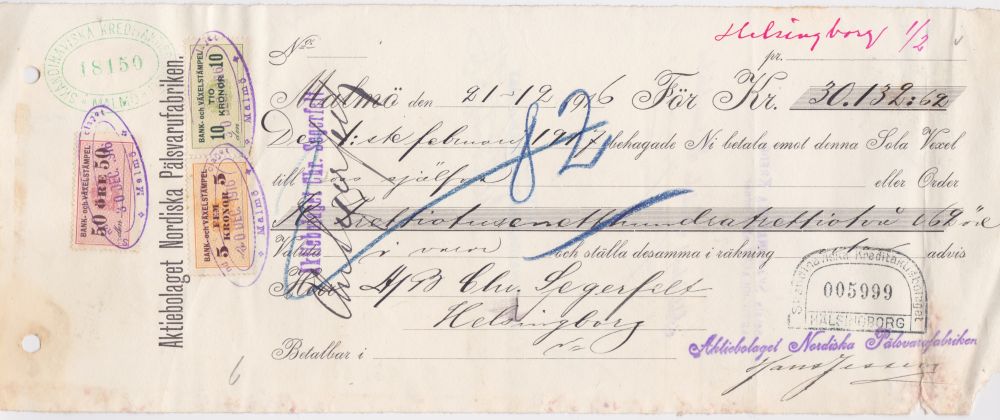 SKANDINAVISKA KREDITAKTIE
18150
MALMÖ
Aktiebolaget Nordiska Pälsvarufabriken.
BANK- och VÄXELSTÄMPEL
10 TIO KRONOR 10
Malmö
BANK- och VÄXELSTÄMPEL
5 FEM KRONOR 5
20 DEC. 1916
Malmö
BANK- och VÄXELSTÄMPEL
50 ÖRE 50
Malmö
Helsingborg 1/2
No
pr.
Malmö den 21-12 1916 För Kr. 30.132:62
Den 1:ste februari 1917 behagade Ni betala emot denna Sola Vexel
till oss själfva eller Order
Kr. Trettiotusenetthundratrettiotvå 062 öre
Valuta i varor och ställa desamma i räkning advis
Herr A/B Chr. Segerfelt
Helsingborg
Betalbar i
82
Aktiebolaget Chr. Segerfelt
Skandinaviska Kreditaktiebolaget
005999
HÄLSINGBORG
Aktiebolaget Nordiska Pälsvarufabriken
6